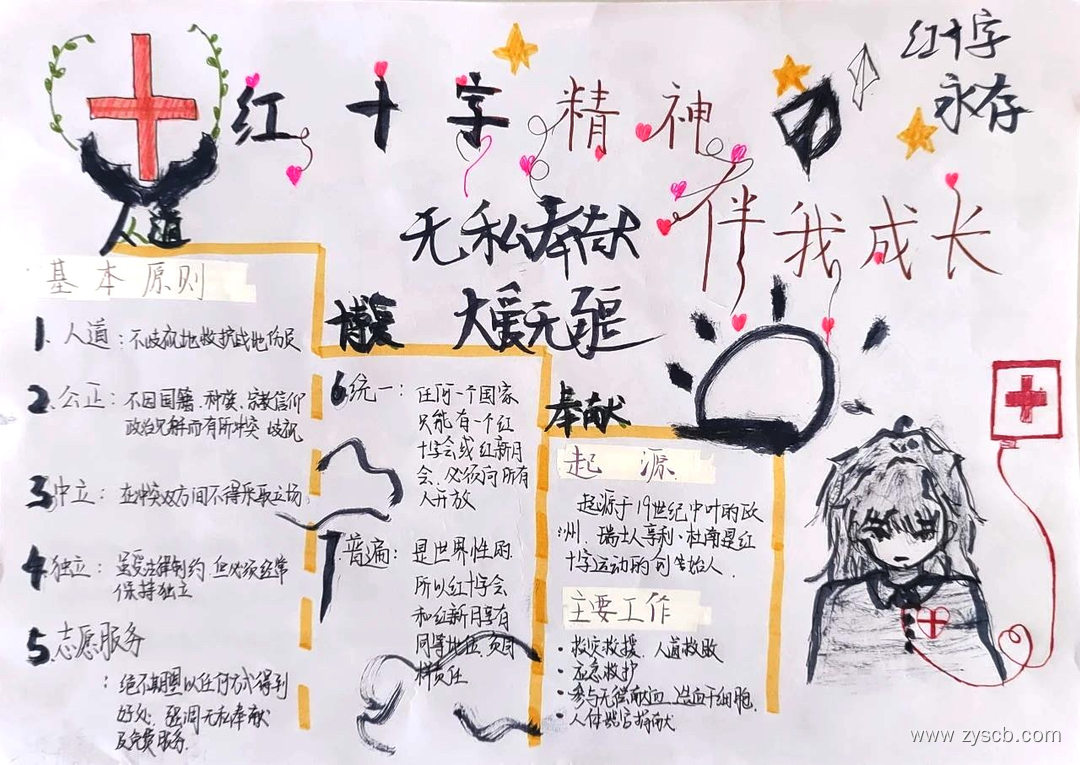 红十字
永存
红十字精神
伴我成长
无私奉献
大爱无疆
人道
基本原则
1. 人道：不歧视地救护战地伤员
2. 公正：不因国籍、种族、宗教信仰
政治见解而有所冲突 歧视
3 中立：在冲突双方间不得采取立场
4 独立：虽受法律制约 但必须经常
保持独立
5. 志愿服务
：绝不期望以任何方式得到
好处，强调无私奉献
及免费服务.
博爱
6 统一：任何一个国家
只能有一个红
十字会或红新月
会、必须向所有
人开放
7 普遍：是世界性的
所以红十字会
和红新月享有
同等地位、负同
样责任
奉献
起源
起源于19世纪中叶的欧
洲、瑞士人亨利·杜南是红
十字运动的创始人.
主要工作
• 救灾救援、人道救助
• 应急救护
• 参与无偿献血、造血干细胞、
• 人体器官捐献
www.zyscb.com